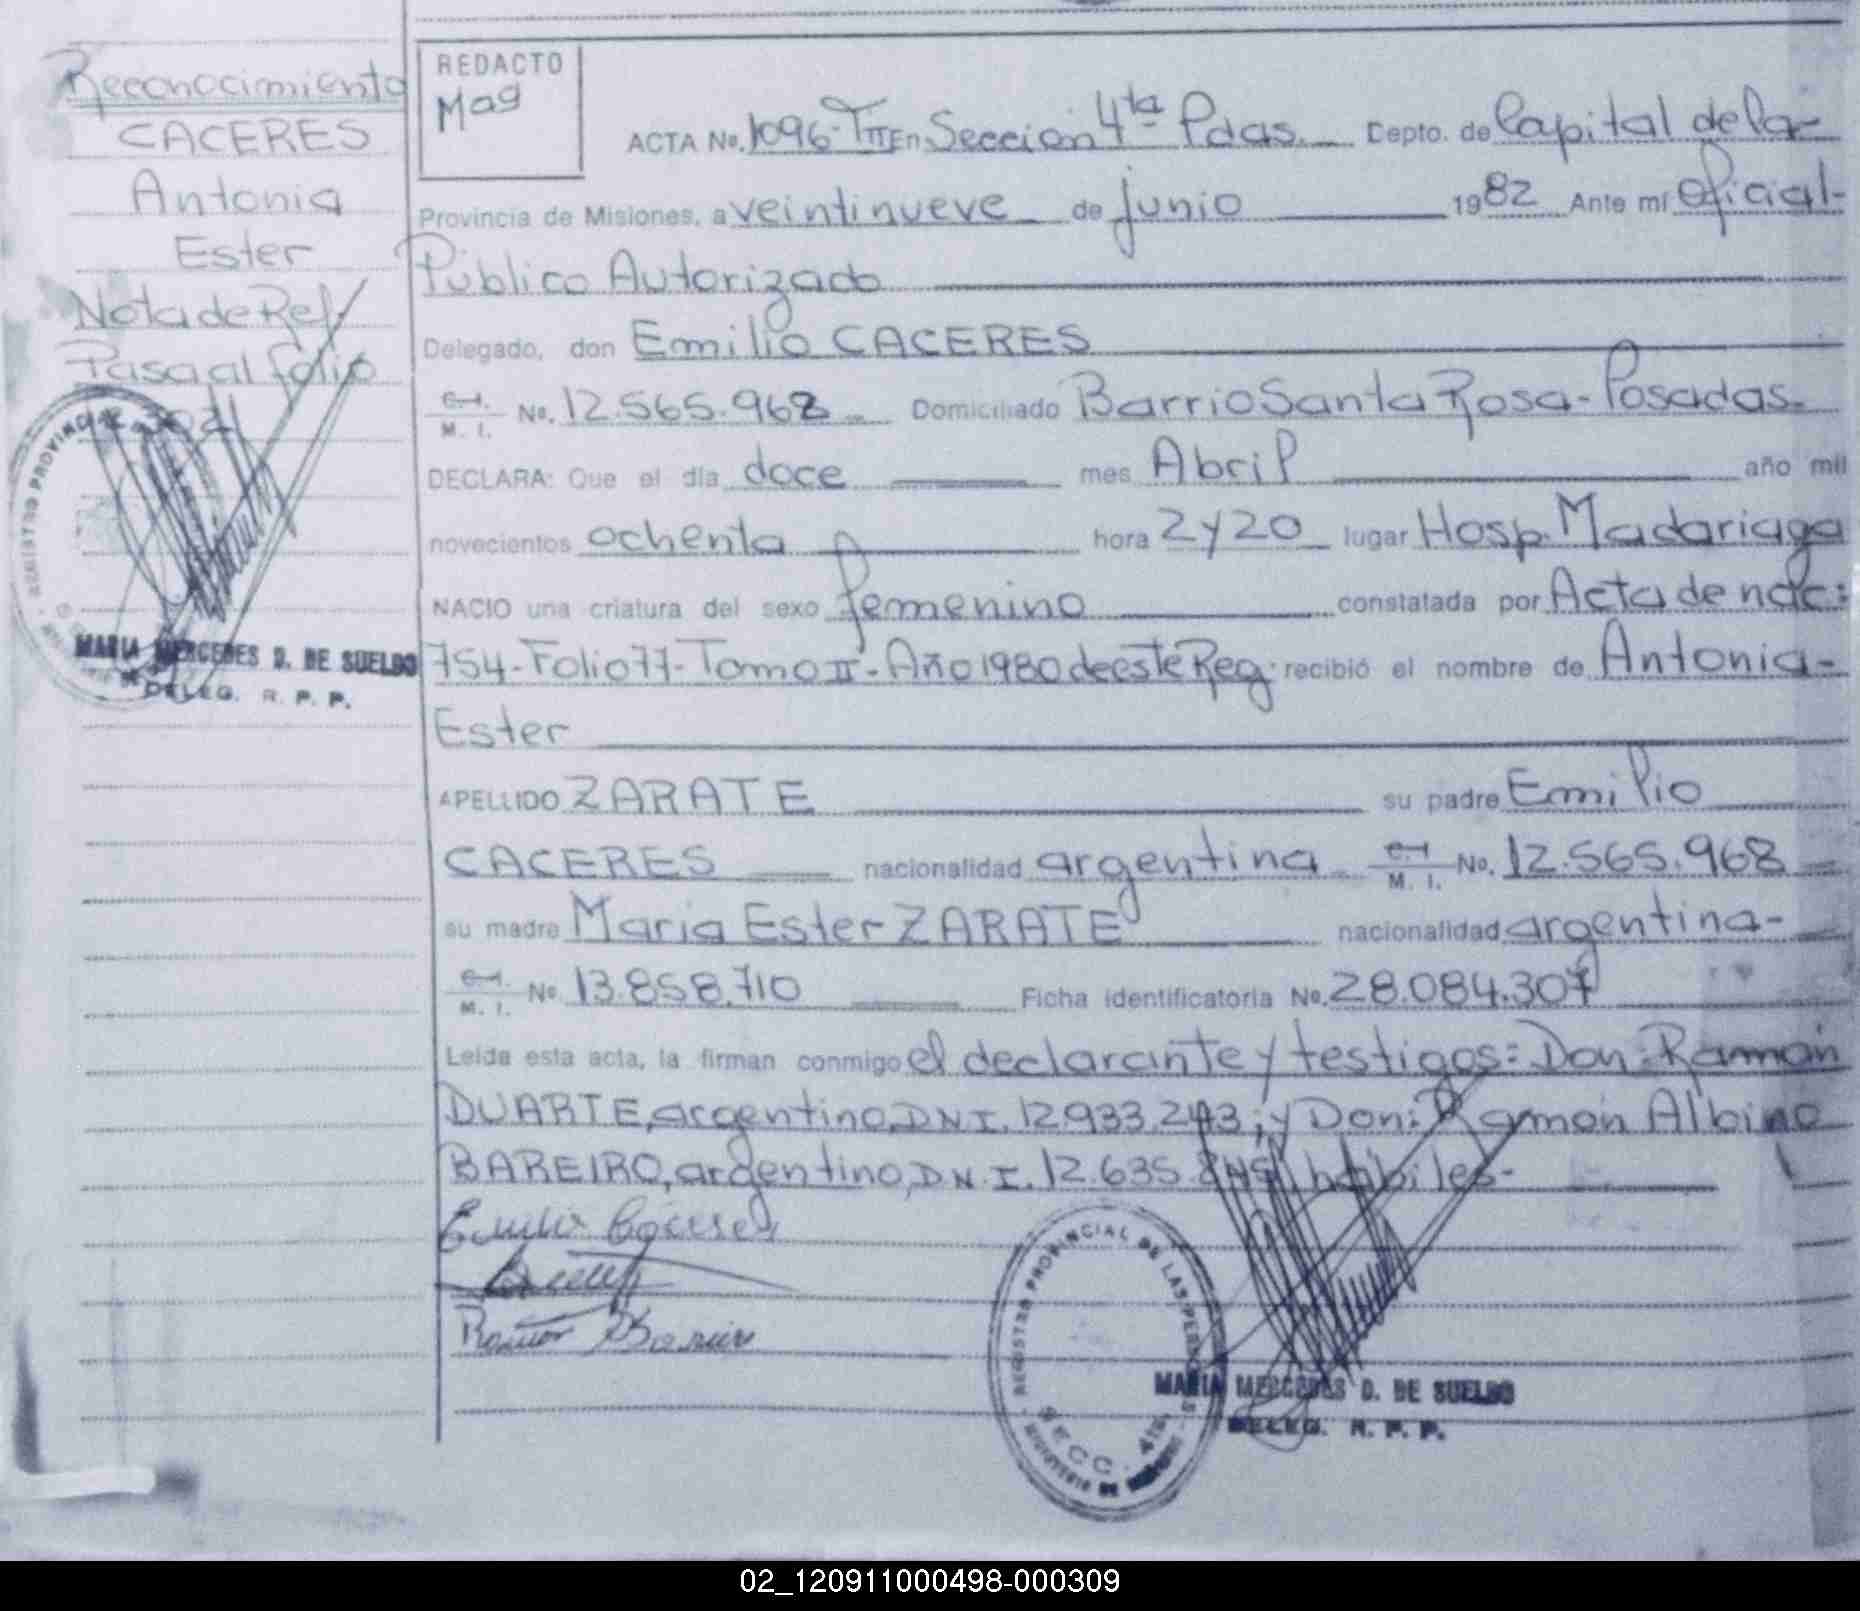 Reconocimiento
CACERES
Antonia
Ester
Nota de Ref.
Pasa al folio
MARIA MERCEDES D. DE SUELDO
DELEG. R. P. P.
REDACTO
Mag
ACTA No. 1096-TII En Sección 4ta Pdas. Depto. de Capital de la
Provincia de Misiones, a veintinueve de junio 1982 Ante mí Oficial-
Público Autorizado
Delegado, don Emilio CACERES
C.I. M. I. No. 12.565.968 Domiciliado Barrio Santa Rosa-Posadas-
DECLARA: Que el día doce mes Abril año mil
novecientos ochenta hora 2 y 20 lugar Hosp. Madariaga
NACIO una criatura del sexo femenino constatada por Acta de nac:
754-Folio 77-Tomo II-Año 1980 de este Reg. recibió el nombre de Antonia-
Ester
APELLIDO ZARATE su padre Emilio
CACERES nacionalidad argentina C.I. M. I. No. 12.565.968
su madre Maria Ester ZARATE nacionalidad argentina-
C.I. M. I. No. 13.858.710 Ficha identificatoria No. 28.084.307
Leída esta acta, la firman conmigo el declarante y testigos: Don: Ramón
DUARTE, argentino, D.N.I. 12.933.243; y Don: Ramón Albino
BAREIRO, argentino, D.N.I. 12.635. hábiles-
Emilio Cáceres
Ramón
REGISTRO PROVINCIAL DE LAS PERSONAS
SECC. 4ta
MARIA MERCEDES D. DE SUELDO
DELEG. R. P. P.
02_120911000498-000309